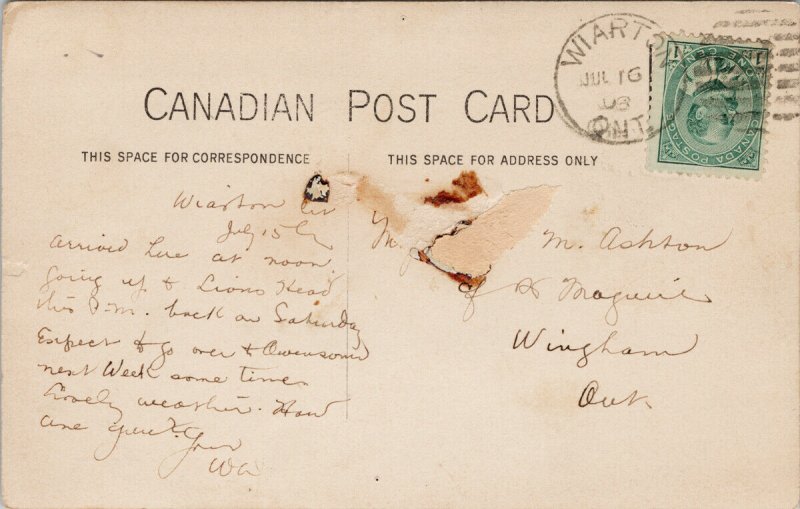 CANADIAN POST CARD
THIS SPACE FOR CORRESPONDENCE
THIS SPACE FOR ADDRESS ONLY
WIARTON
JUL 16
08
ONT
ONE CENT
CANADA POSTAGE
Wiarton
July 15
arrived here at noon
going up to Lions Head
this P.M. back on Saturday
Expect to go over to Owensound
next Week some time
Lovely weather. How
are you?
M. Ashton
Maguire
Wingham
Ont